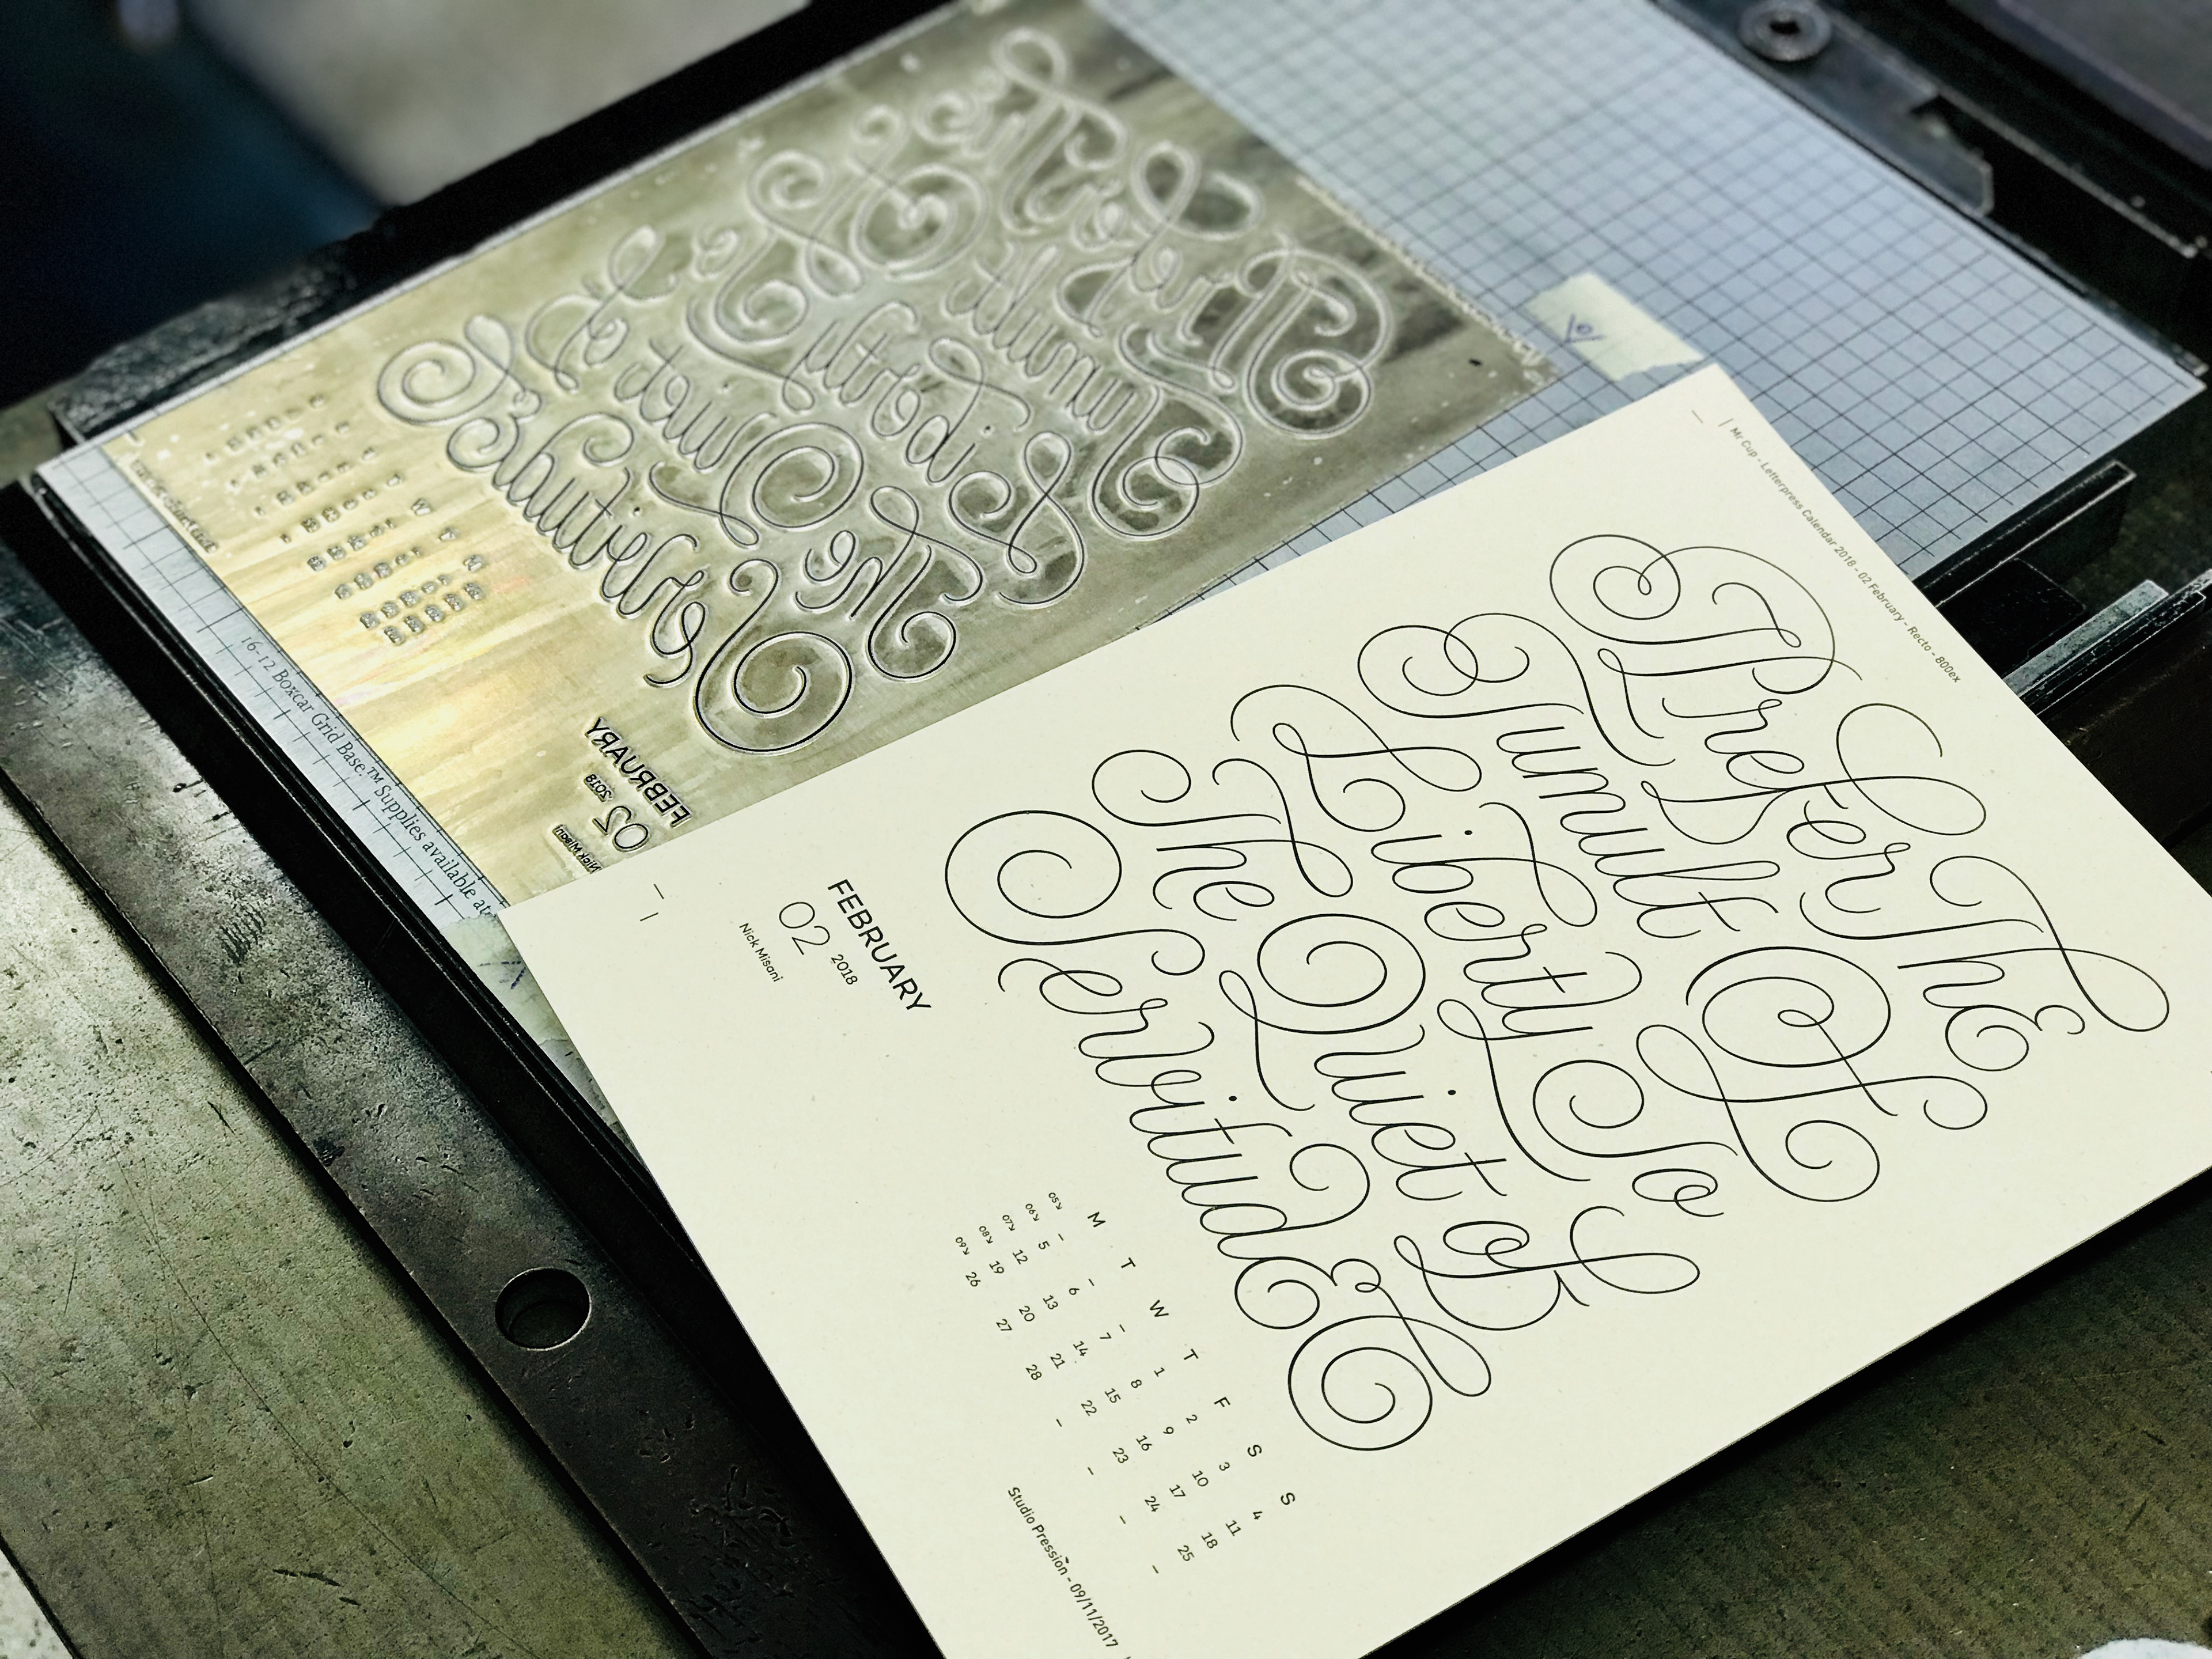 Mr Cup - Letterpress Calendar 2018 - 02 February - Recto - 800ex
I Prefer The
Tumult Of
Liberty To
The Quiet of
Servitude
FEBRUARY
02 2018
Nick Misani
M T W T F S S
05↘ – – – 1 2 3 4
06↘ 5 6 7 8 9 10 11
07↘ 12 13 14 15 16 17 18
08↘ 19 20 21 22 23 24 25
09↘ 26 27 28 – – – –
Studio Pression - 09/11/2017
I Prefer The
Tumult Of
Liberty To
The Quiet of
Servitude
FEBRUARY
02 2018
Nick Misani
16-12 Boxcar Grid Base.™ Supplies available at